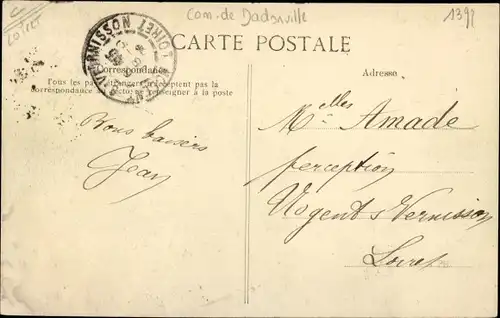 C
LOIRET
Com. de Dadonville
1392
NOGENT-S-VERNISSON LOIRET
CARTE POSTALE
Correspondance
Tous les pays étrangers n'acceptent pas la
correspondance au recto, se renseigner à la poste
Adresse
Bons baisers
Jean
Melles Amade
perception
Nogent s Vernisson
Loiret